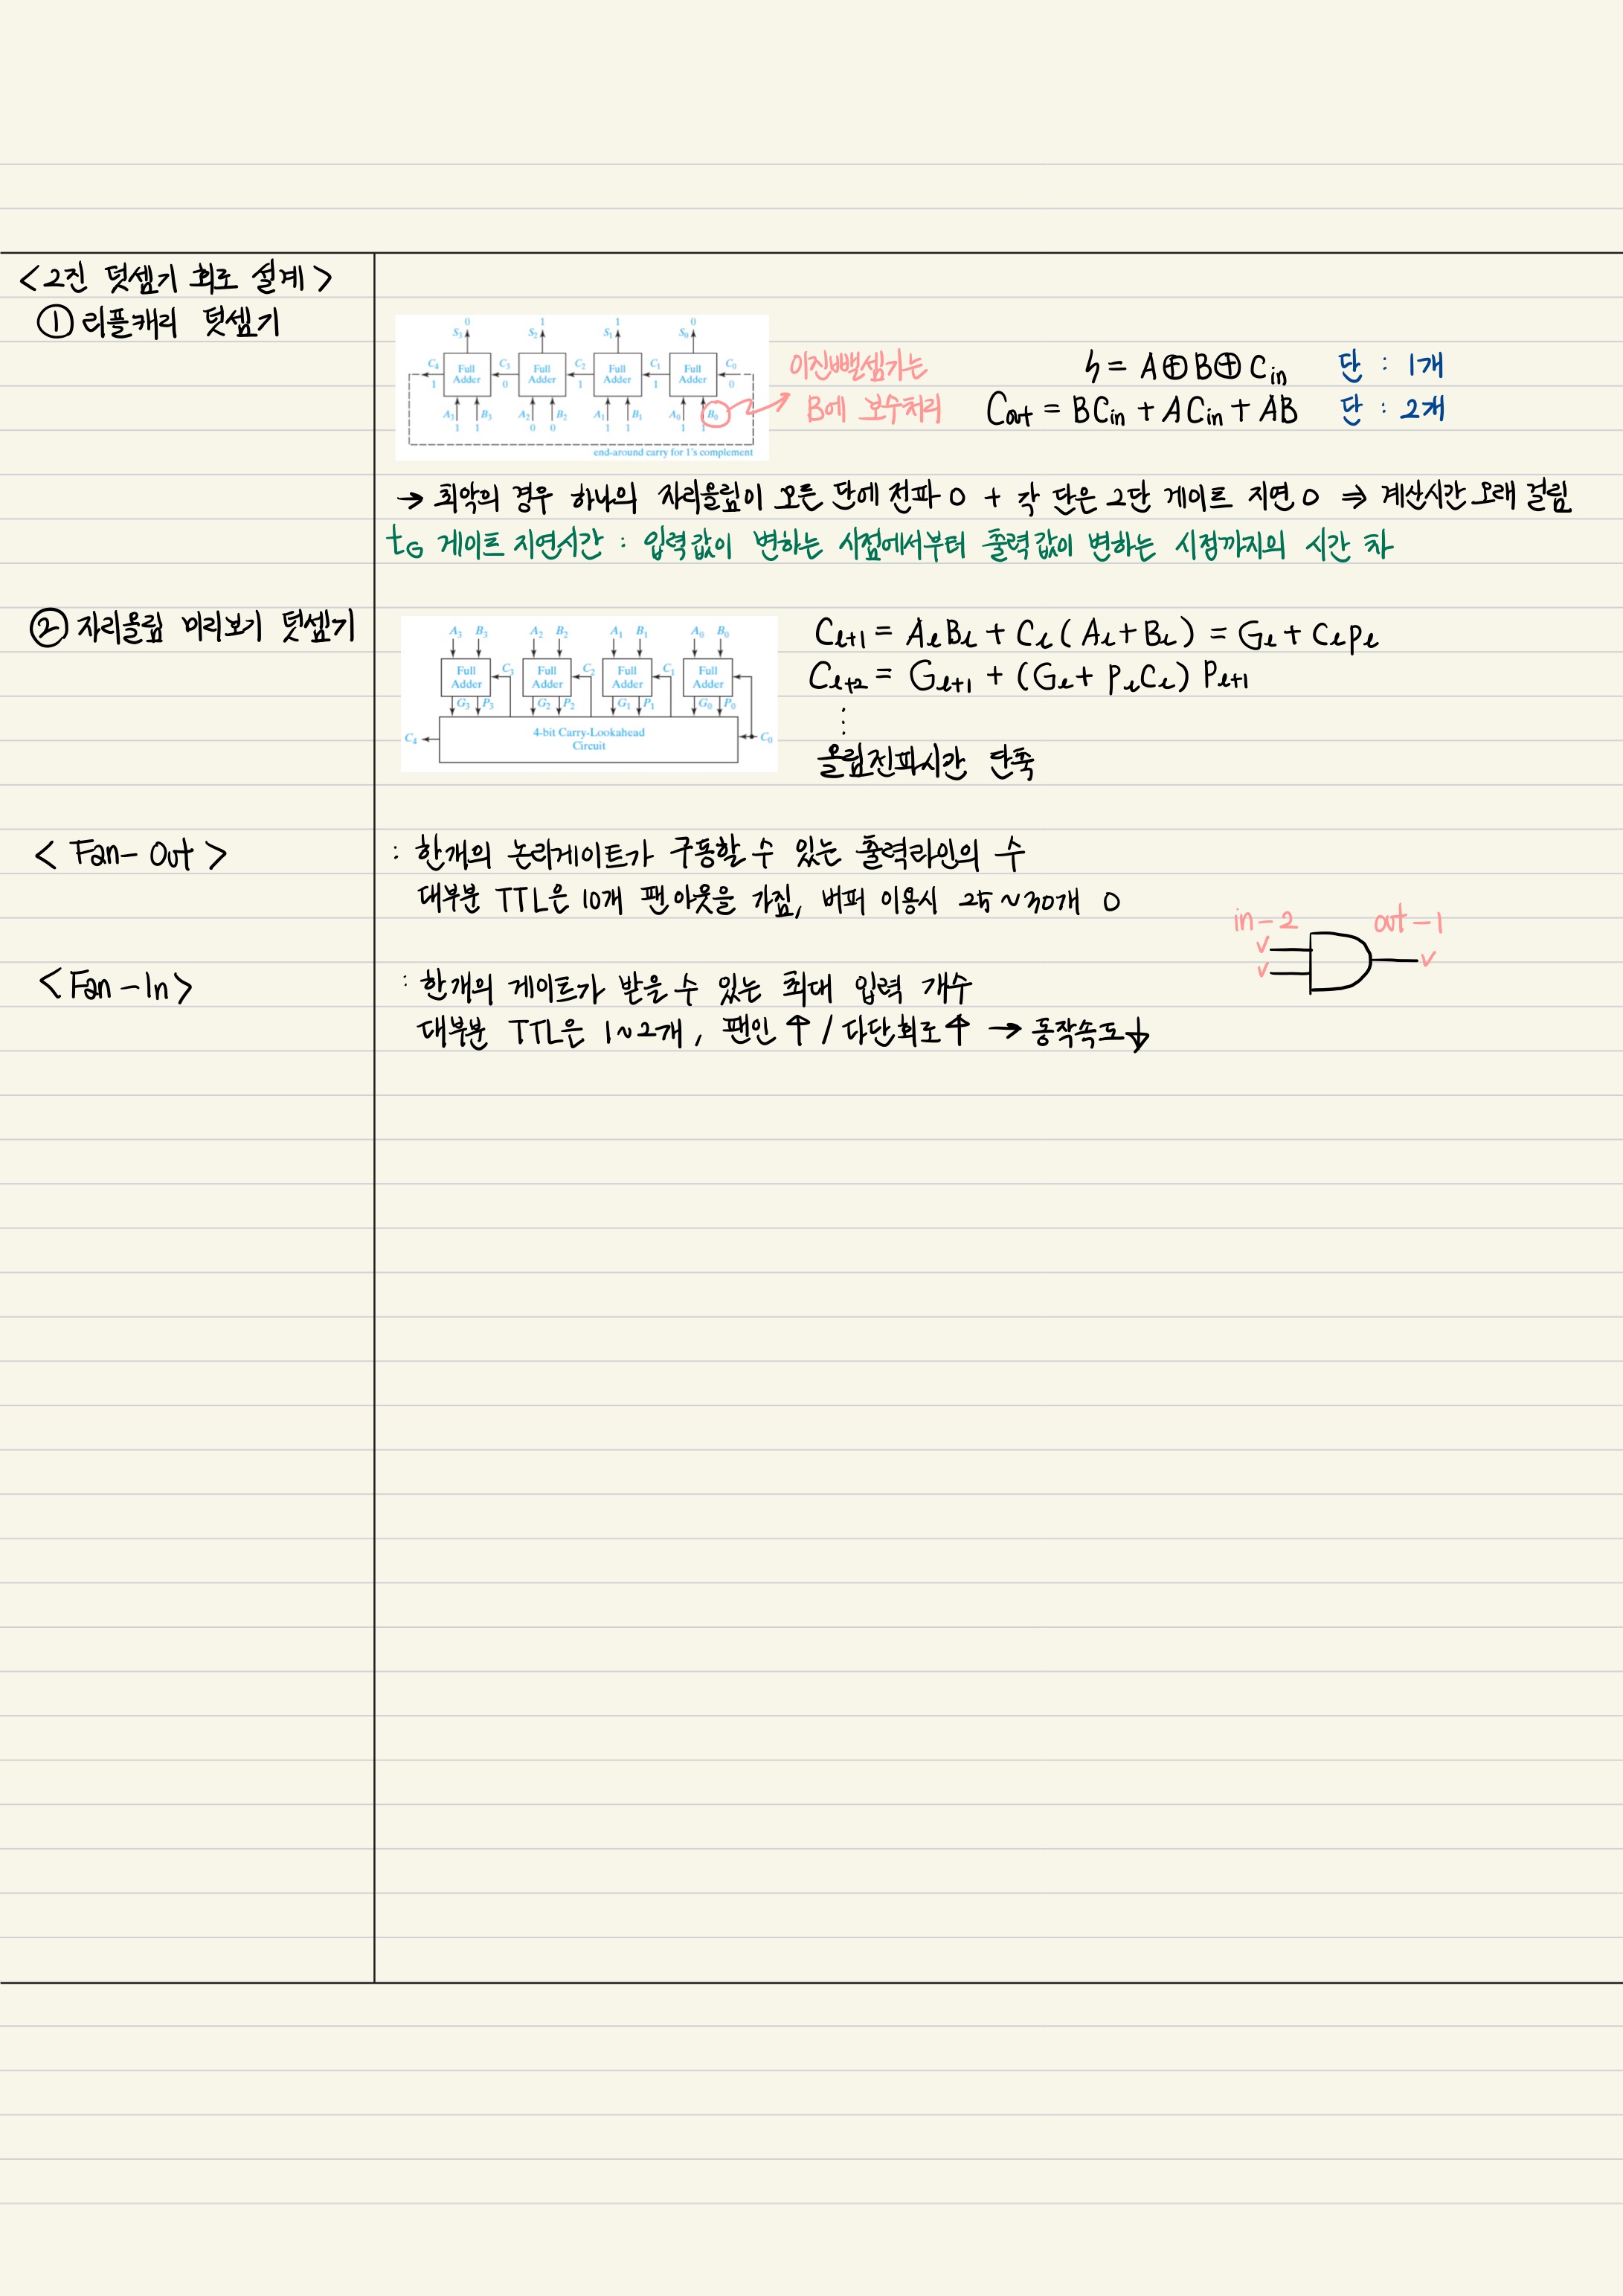 <2진 덧셈기 회로 설계>
① 리플캐리 덧셈기
0 1 1 0
S₃ S₂ S₁ S₀
C₄ Full Adder C₃ Full Adder C₂ Full Adder C₁ Full Adder C₀
1 0 1 1 0
A₃ B₃ A₂ B₂ A₁ B₁ A₀ B₀
1 1 0 0 1 1 1 1
end-around carry for 1's complement
이진뺄셈기는
B에 보수처리
S = A⊕B⊕Cin 단 : 1개
Cout = BCin + ACin + AB 단 : 2개
→ 최악의 경우 하나의 자리올림이 모든 단에 전파 O + 각 단은 2단 게이트 지연 O ⇒ 계산시간 오래 걸림
tG 게이트 지연시간 : 입력값이 변하는 시점에서부터 출력값이 변하는 시점까지의 시간 차
② 자리올림 미리보기 덧셈기
A₃ B₃ A₂ B₂ A₁ B₁ A₀ B₀
Full Adder C₃ Full Adder C₂ Full Adder C₁ Full Adder
G₃ P₃ G₂ P₂ G₁ P₁ G₀ P₀
C₄ 4-bit Carry-Lookahead Circuit C₀
Ci+1 = AiBi + Ci(Ai+Bi) = Gi + CiPi
Ci+2 = Gi+1 + (Gi + PiCi) Pi+1
⋮
올림전파시간 단축
< Fan-Out >
: 한개의 논리게이트가 구동할 수 있는 출력라인의 수
대부분 TTL은 10개 팬아웃을 가짐, 버퍼 이용시 25~30개 O
in-2 out-1
<Fan-In>
: 한개의 게이트가 받을 수 있는 최대 입력 개수
대부분 TTL은 1~2개, 팬인↑ / 다단회로↑ → 동작속도↓